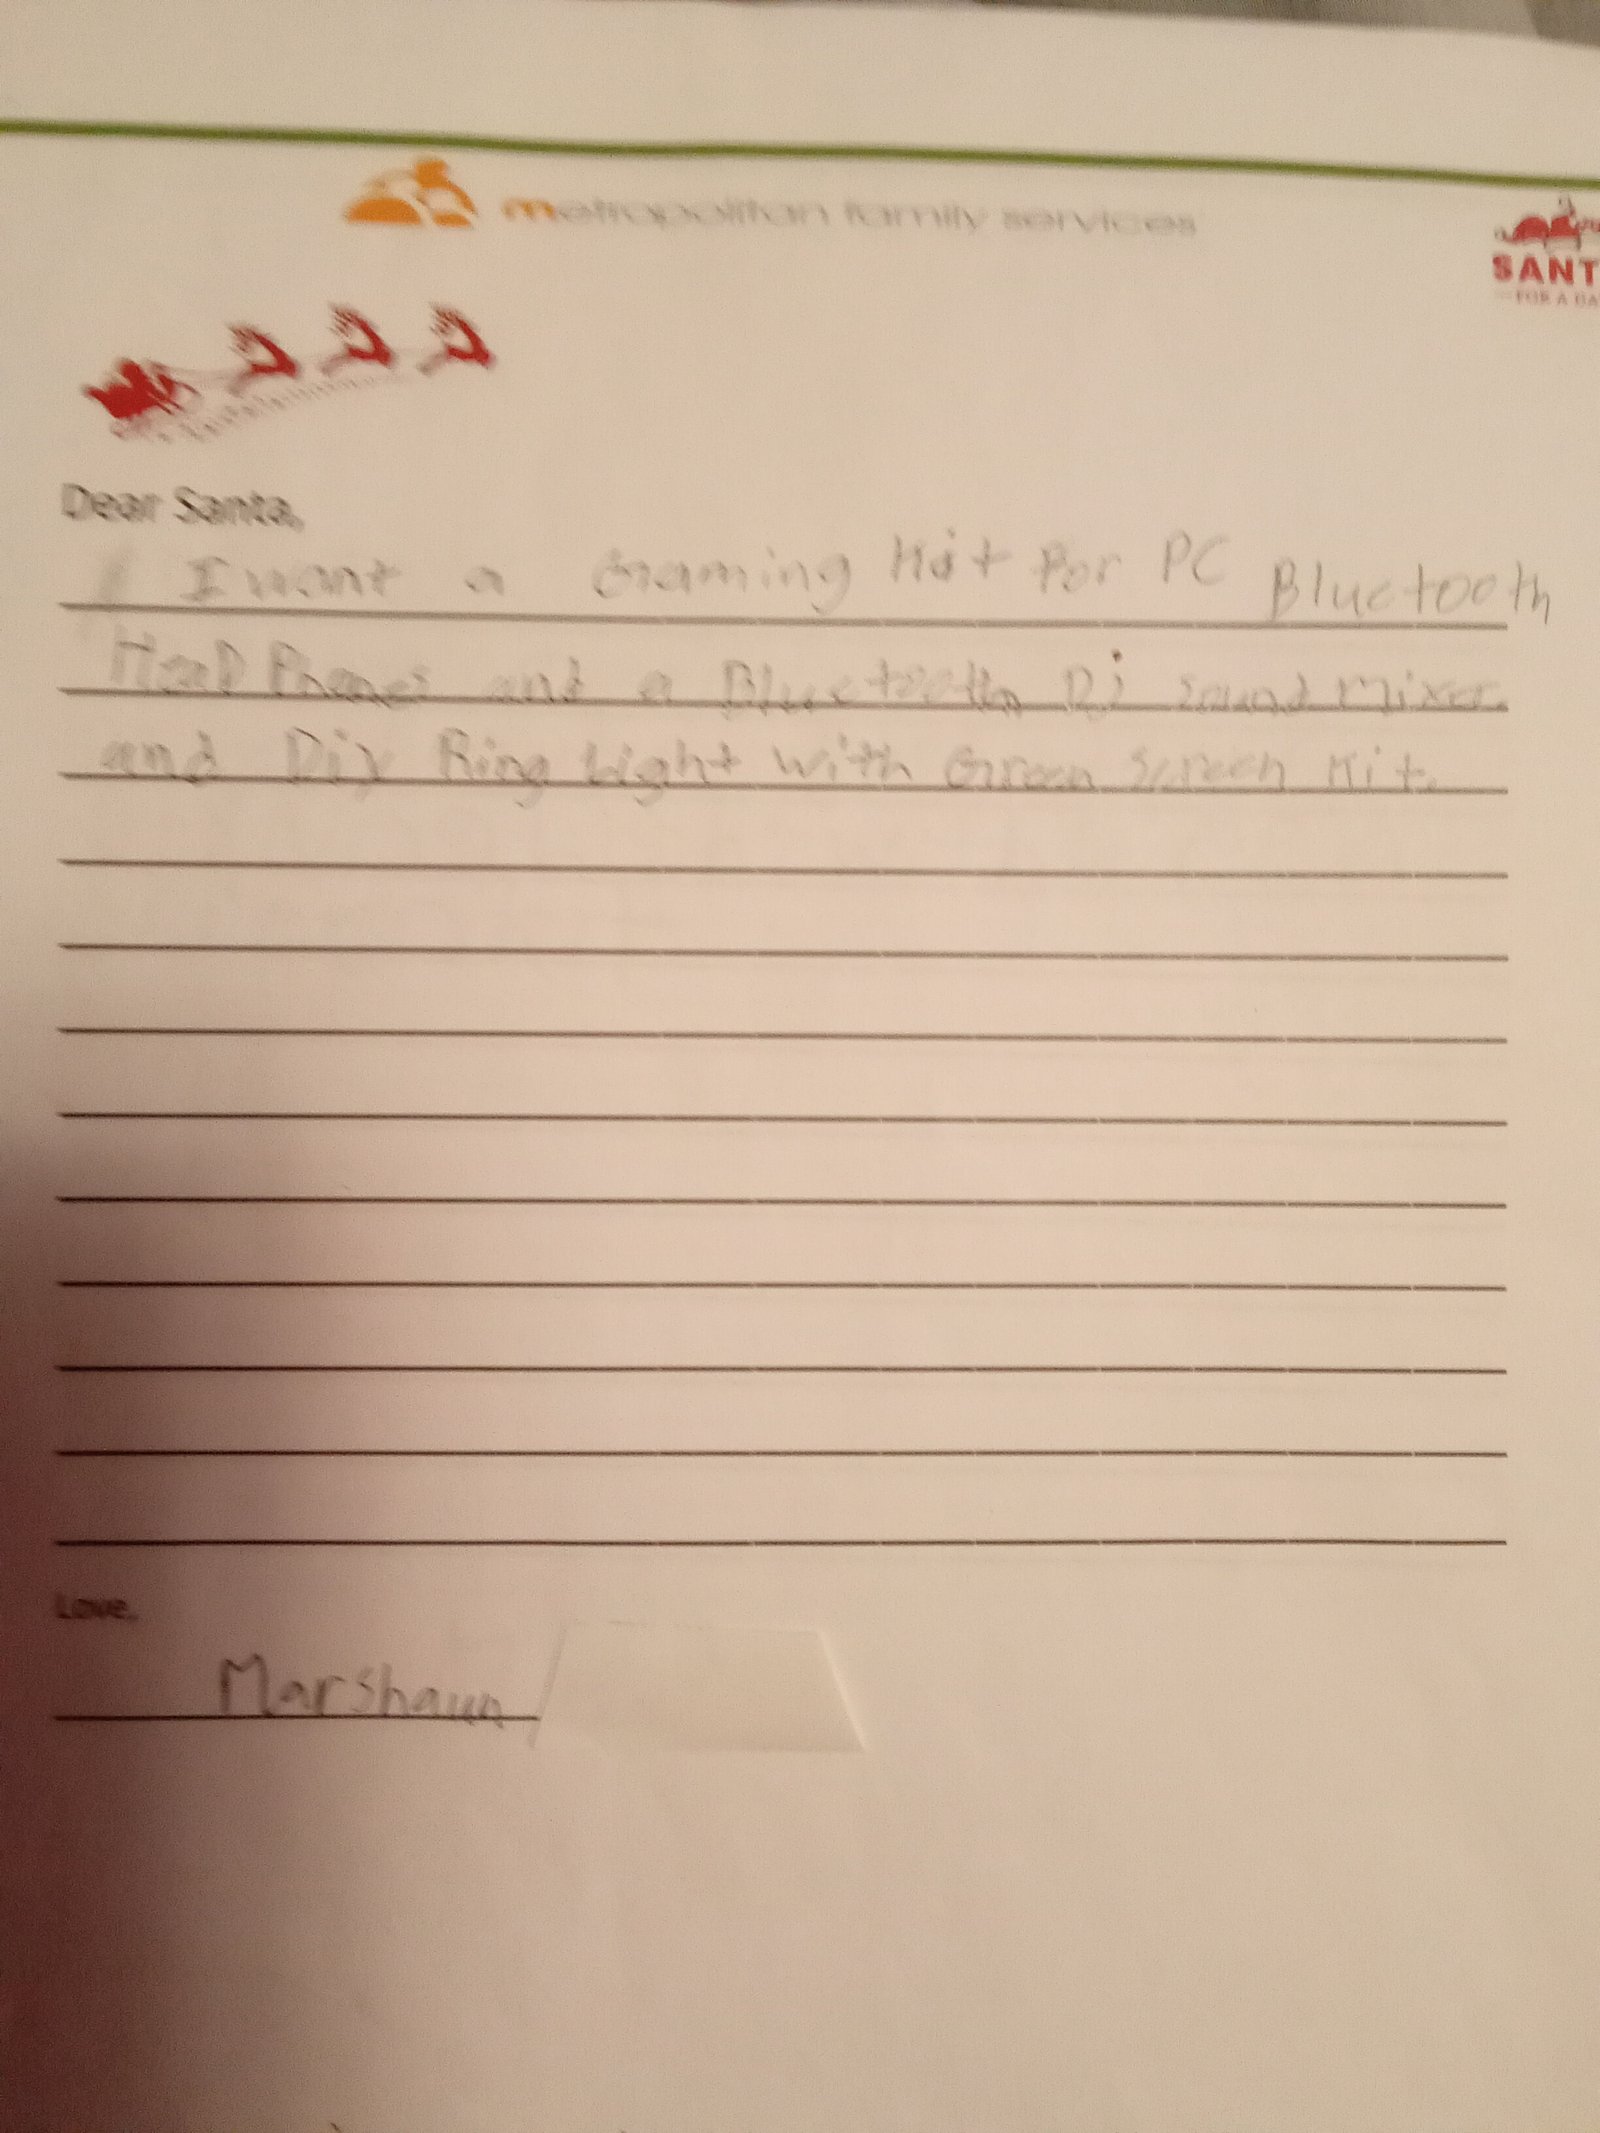 metropolitan family services
SANT
FOR A DA
Dear Santa,
I want a Gaming Kit For PC Bluetooth
HeaD Phones and a Bluetooth Dj sound Mixer.
and Diy Ring Light with Green Screen Kit.
Love,
Marshaun